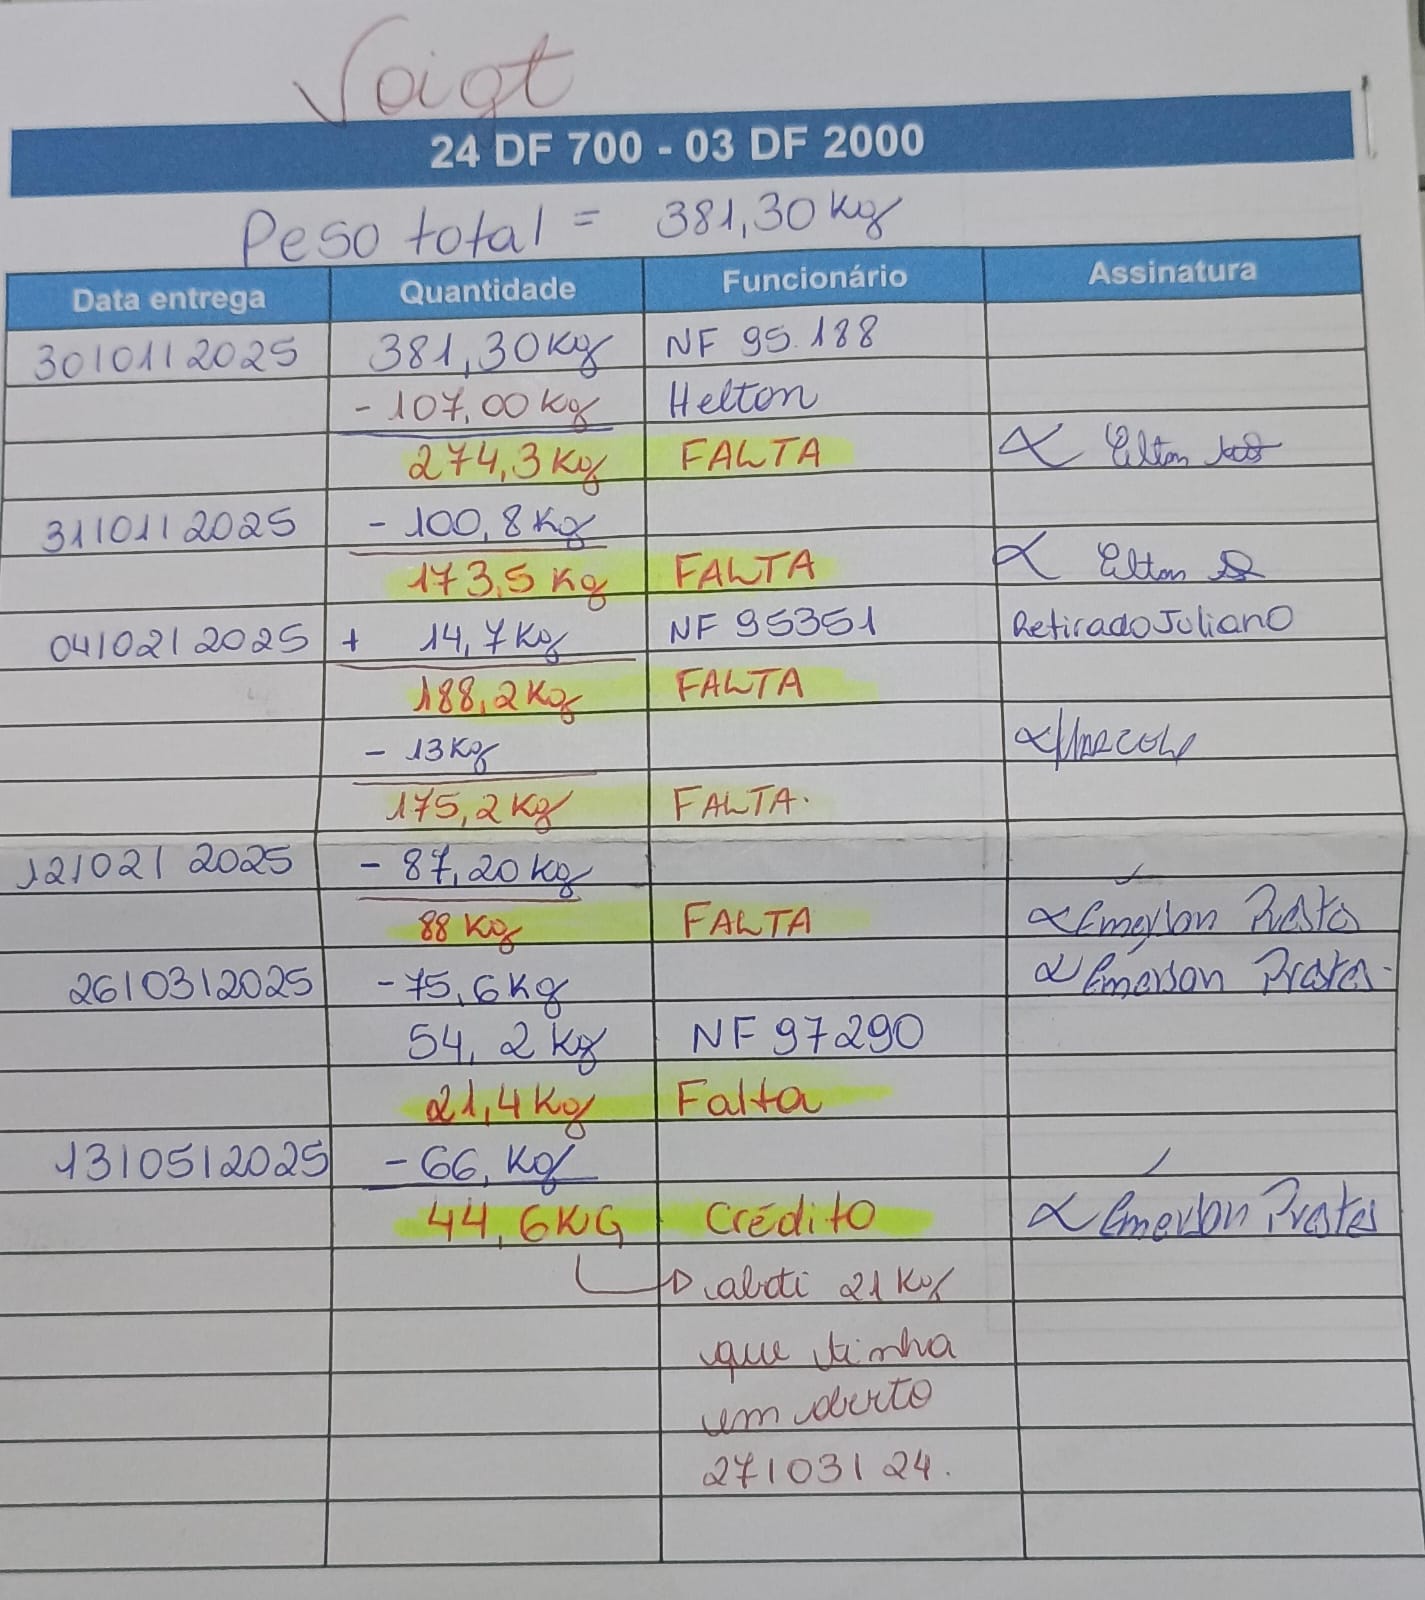 Voigt
24 DF 700 - 03 DF 2000
Peso total = 381,30 kg
Data entrega Quantidade Funcionário Assinatura
30/01/2025 381,30 kg NF 95.188
- 107,00 kg Helton
274,3 kg FALTA x Elton
31/01/2025 - 100,8 kg
173,5 kg FALTA x Elton
04/02/2025 + 14,7 kg NF 95351 Retirado Juliano
188,2 kg FALTA
- 13 kg
175,2 kg FALTA.
12/02/2025 - 87,20 kg
88 kg FALTA x Emerson Prates
26/03/2025 - 75,6 kg x Emerson Prates
54,2 kg NF 97290
21,4 kg Falta
13/05/2025 - 66, kg
44,6 KG Crédito x Emerson Prates
abati 21 kg
que tinha
em aberto
27/03/24.